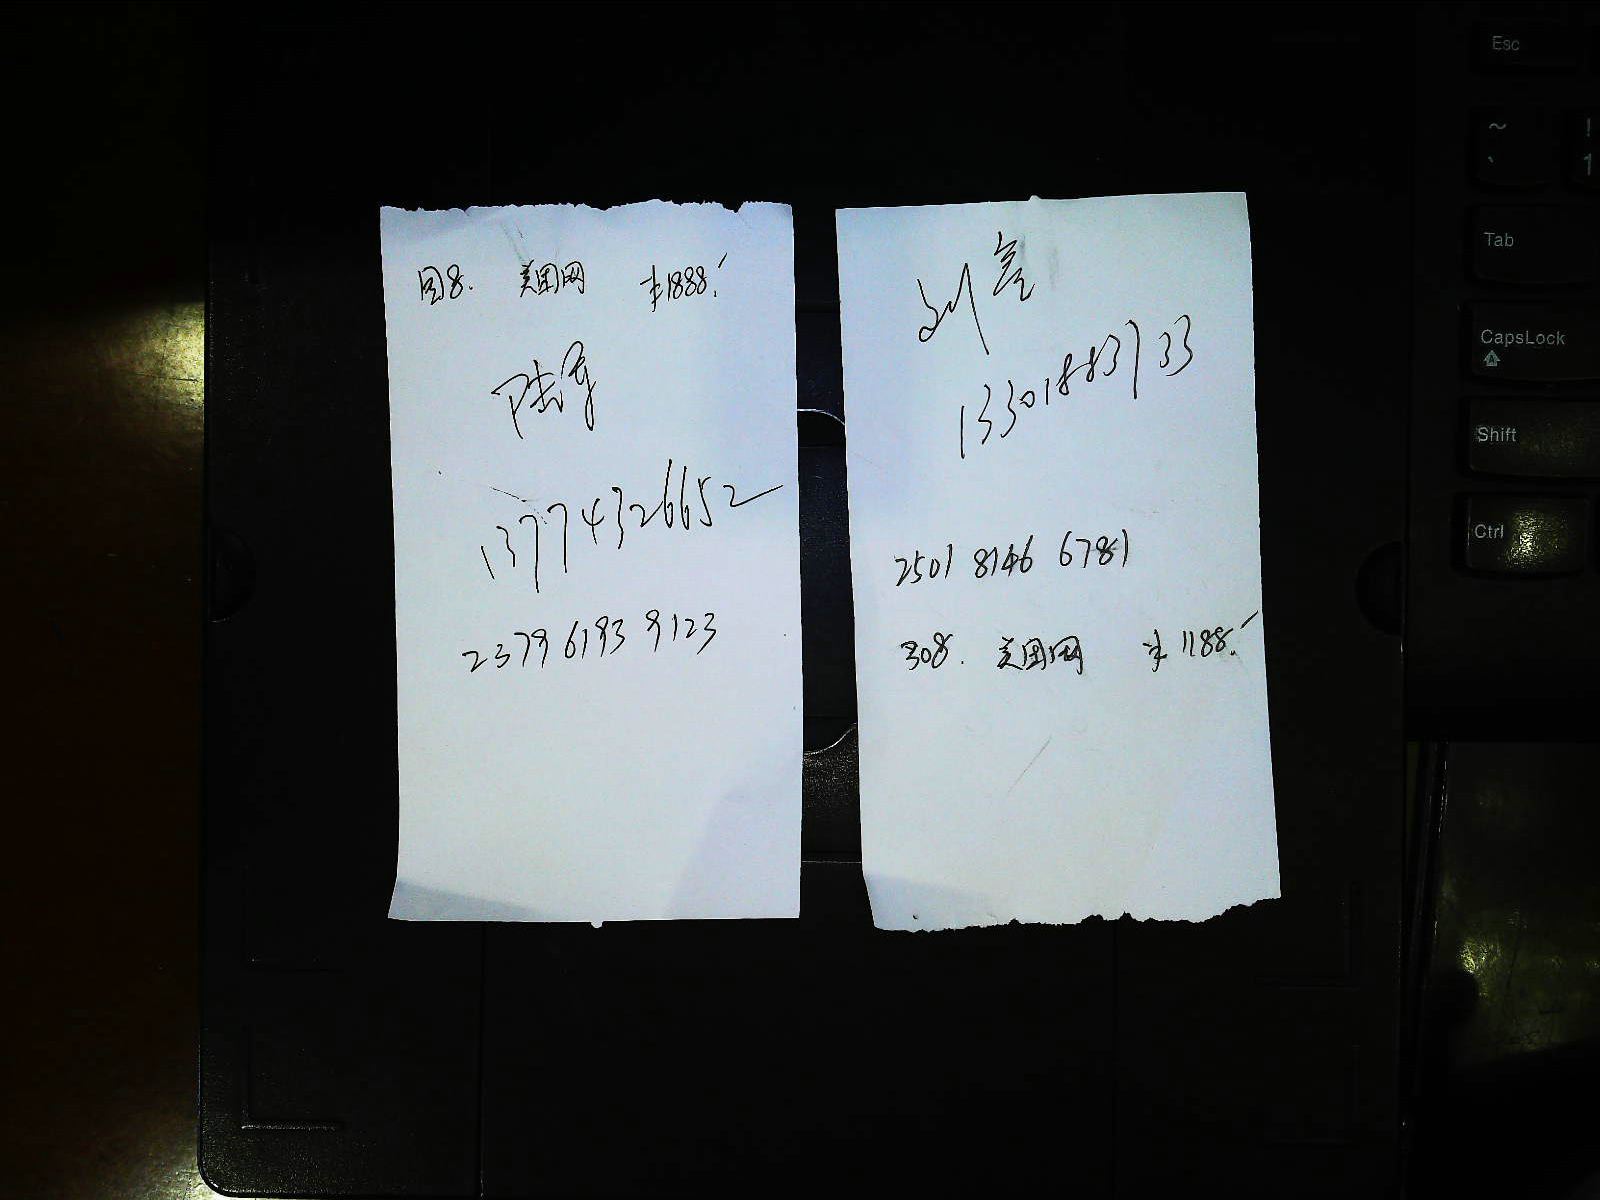 图8. 美团网 ¥1888.
陆军
13774326652
2379 6193 9123
刘鑫
13301883733
2501 8146 6781
308. 美团网 ¥1188.
Esc
~
`
!
1
Tab
CapsLock
Shift
Ctrl